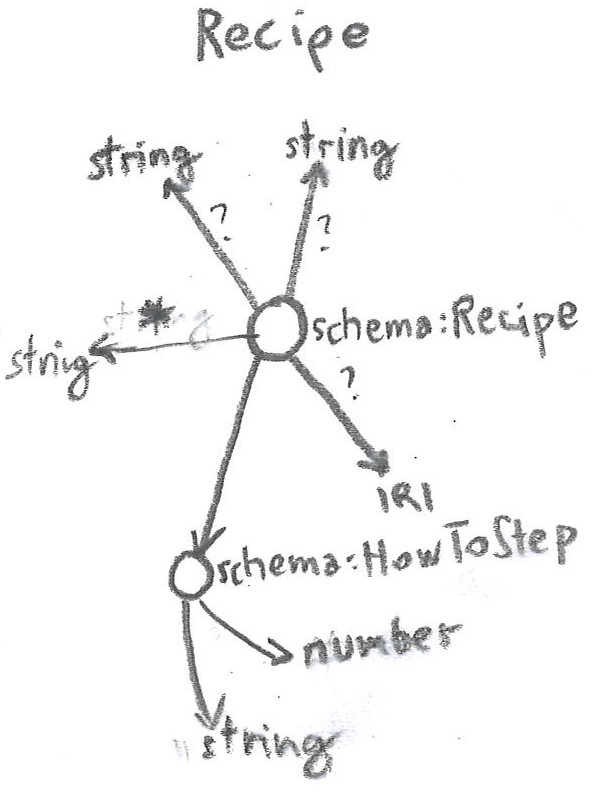 Recipe
string
string
?
?
*
schema:Recipe
strig
?
IRI
schema:HowToStep
number
string